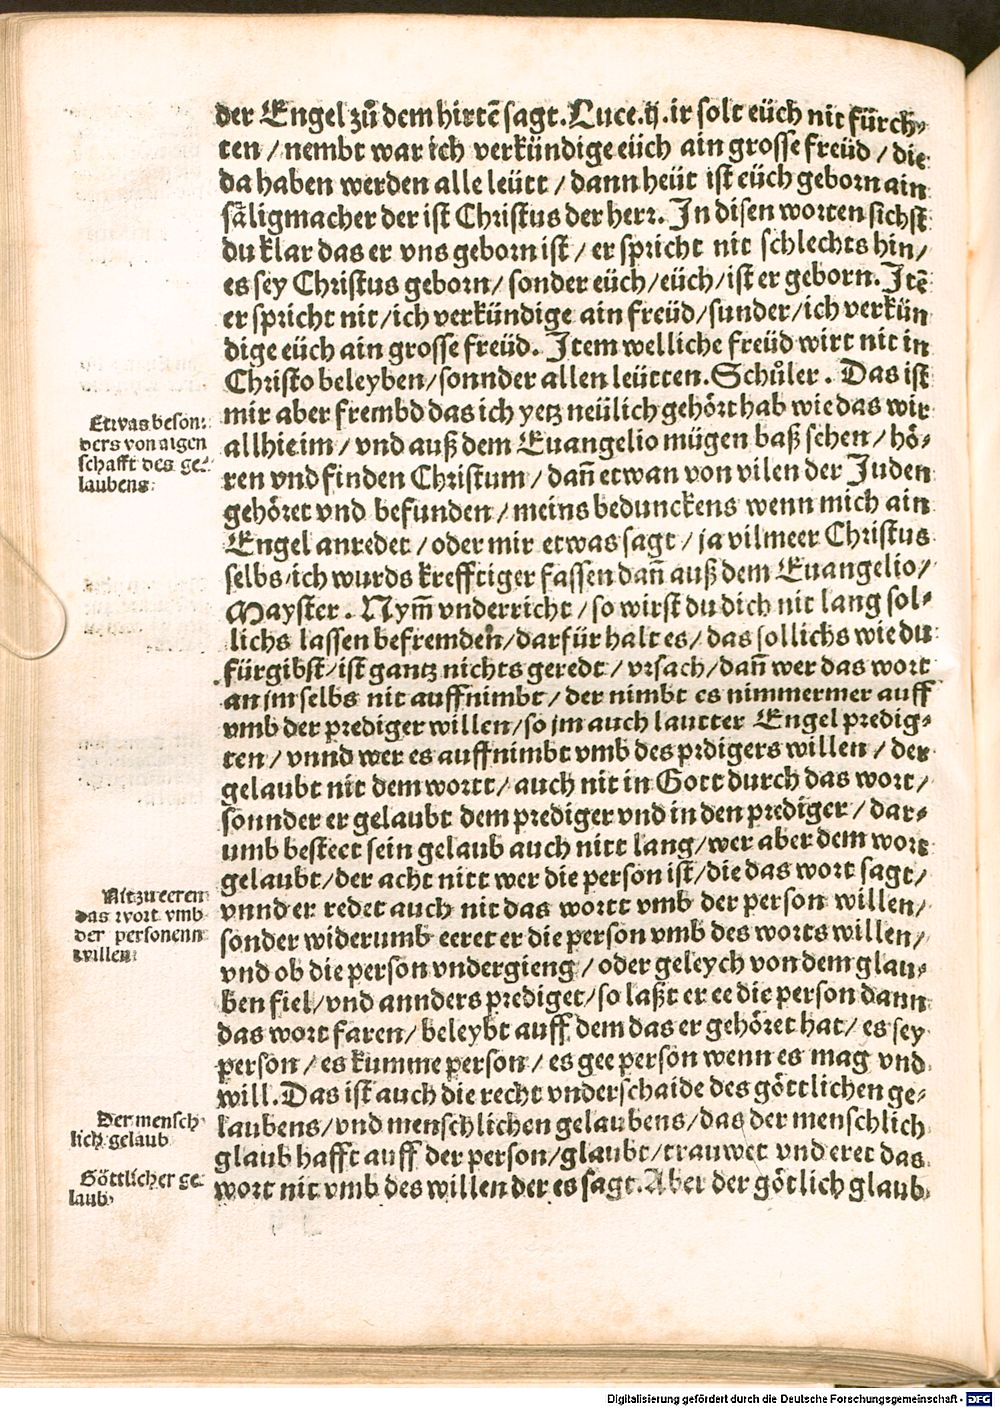 der Engel zů dem hirtē sagt. Luce. ij. ir solt eüch nit fürch⸗
ten / nembt war ich verkündige eüch ain grosse freüd / die
da haben werden alle leütt / dann heüt ist eüch geborn ain
såligmacher der ist Christus der herr. In disen worten sichst
du klar das er vns geborn ist / er spricht nit schlechts hin /
es sey Christus geborn / sonder eüch / eüch / ist er geborn. Itē
er spricht nit / ich verkündige ain freüd / sunder / ich verkün
dige eüch ain grosse freüd. Item welliche freüd wirt nit in
Christo beleyben / sonnder allen leütten. Schůler. Das ist
mir aber frembd das ich yetz neülich gehört hab wie das wir
allhie im / vnd auß dem Euangelio mügen baß sehen / hö⸗
ren vnd finden Christum / dañ etwan von vilen der Juden
gehöret vnd befunden / meins bedunckens wenn mich ain
Engel anredet / oder mir etwas sagt / ja vilmeer Christus
selbs / ich wurds krefftiger fassen dañ auß dem Euangelio /
Mayster. Nym̄ vnderricht / so wirst du dich nit lang sol⸗
lichs lassen befremden / darfür halt es / das sollichs wie du
fürgibst / ist gantz nichts geredt / vrsach / dañ wer das wort
an jm selbs nit auffnimbt / der nimbt es nimmermer auff
vmb der prediger willen / so jm auch lautter Engel predig⸗
ten / vnnd wer es auffnimbt vmb des prdigers willen / der
gelaubt nit dem wortt / auch nit in Gott durch das wort /
sonnder er gelaubt dem prediger vnd in den prediger / dar⸗
umb besteet sein gelaub auch nitt lang / wer aber dem wort
gelaubt / der acht nitt wer die person ist / die das wort sagt /
vnnd er redet auch nit das wortt vmb der person willen /
sonder widerumb eeret er die person vmb des worts willen /
vnd ob die person vndergieng / oder geleych von dem glau⸗
ben fiel / vnd annders prediget / so laßt er ee die person dann
das wort faren / beleybt auff dem das er gehöret hat / es sey
person / es kumme person / es gee person wenn es mag vnd
will. Das ist auch die recht vnderschaide des göttlichen ge⸗
laubens / vnd menschlichen gelaubens / das der menschlich
glaub hafft auff der person / glaubt / trauwet vnd eret das
wort nit vmb des willen der es sagt. Aber der götlich glaub
Etwas beson⸗
ders von aigen
schafft des ge⸗
laubens.
Nit zu eeren
das wort vmb
der personenn
willen.
Der mensch
lich gelaub
Göttlicher ge⸗
laub
Digitalisierung gefördert durch die Deutsche Forschungsgemeinschaft - DFG